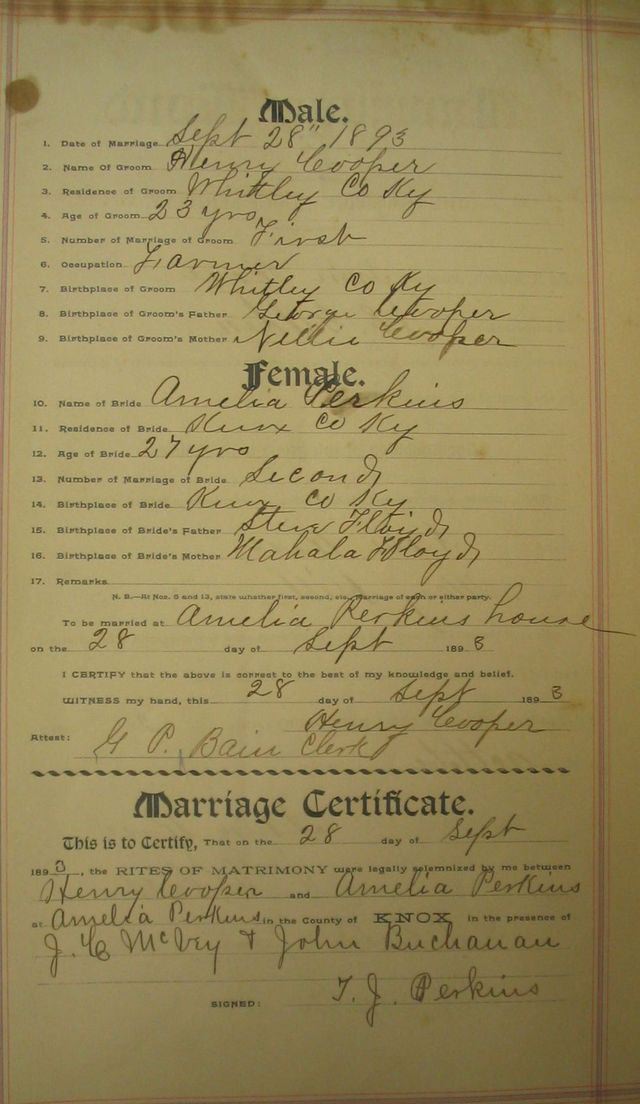 Male.
1. Date of Marriage Sept 28" 1893
2. Name Of Groom Henry Cooper
3. Residence of Groom Whitley Co Ky
4. Age of Groom 23 yrs
5. Number of Marriage of Groom First
6. Occupation Farmer
7. Birthplace of Groom Whitley Co Ky
8. Birthplace of Groom's Father George Cooper
9. Birthplace of Groom's Mother Nellie Cooper
Female.
10. Name of Bride Amelia Perkins
11. Residence of Bride Knox Co Ky
12. Age of Bride 27 yrs
13. Number of Marriage of Bride Second
14. Birthplace of Bride Knox Co Ky
15. Birthplace of Bride's Father Floyd
16. Birthplace of Bride's Mother Mahala Floyd
17. Remarks
N. B.—At Nos. 5 and 13, state whether first, second, etc., marriage of each or either party.
To be married at Amelia Perkins house
on the 28 day of Sept 1893
I CERTIFY that the above is correct to the best of my knowledge and belief.
WITNESS my hand, this 28 day of Sept 1893
Henry Cooper
Attest: G P. Bain Clerk
Marriage Certificate.
This is to Certify, That on the 28 day of Sept
1893, the RITES OF MATRIMONY were legally solemnized by me between
Henry Cooper and Amelia Perkins
at Amelia Perkins in the County of KNOX in the presence of
J. C McVey & John Buchanan
SIGNED: T. J. Perkins